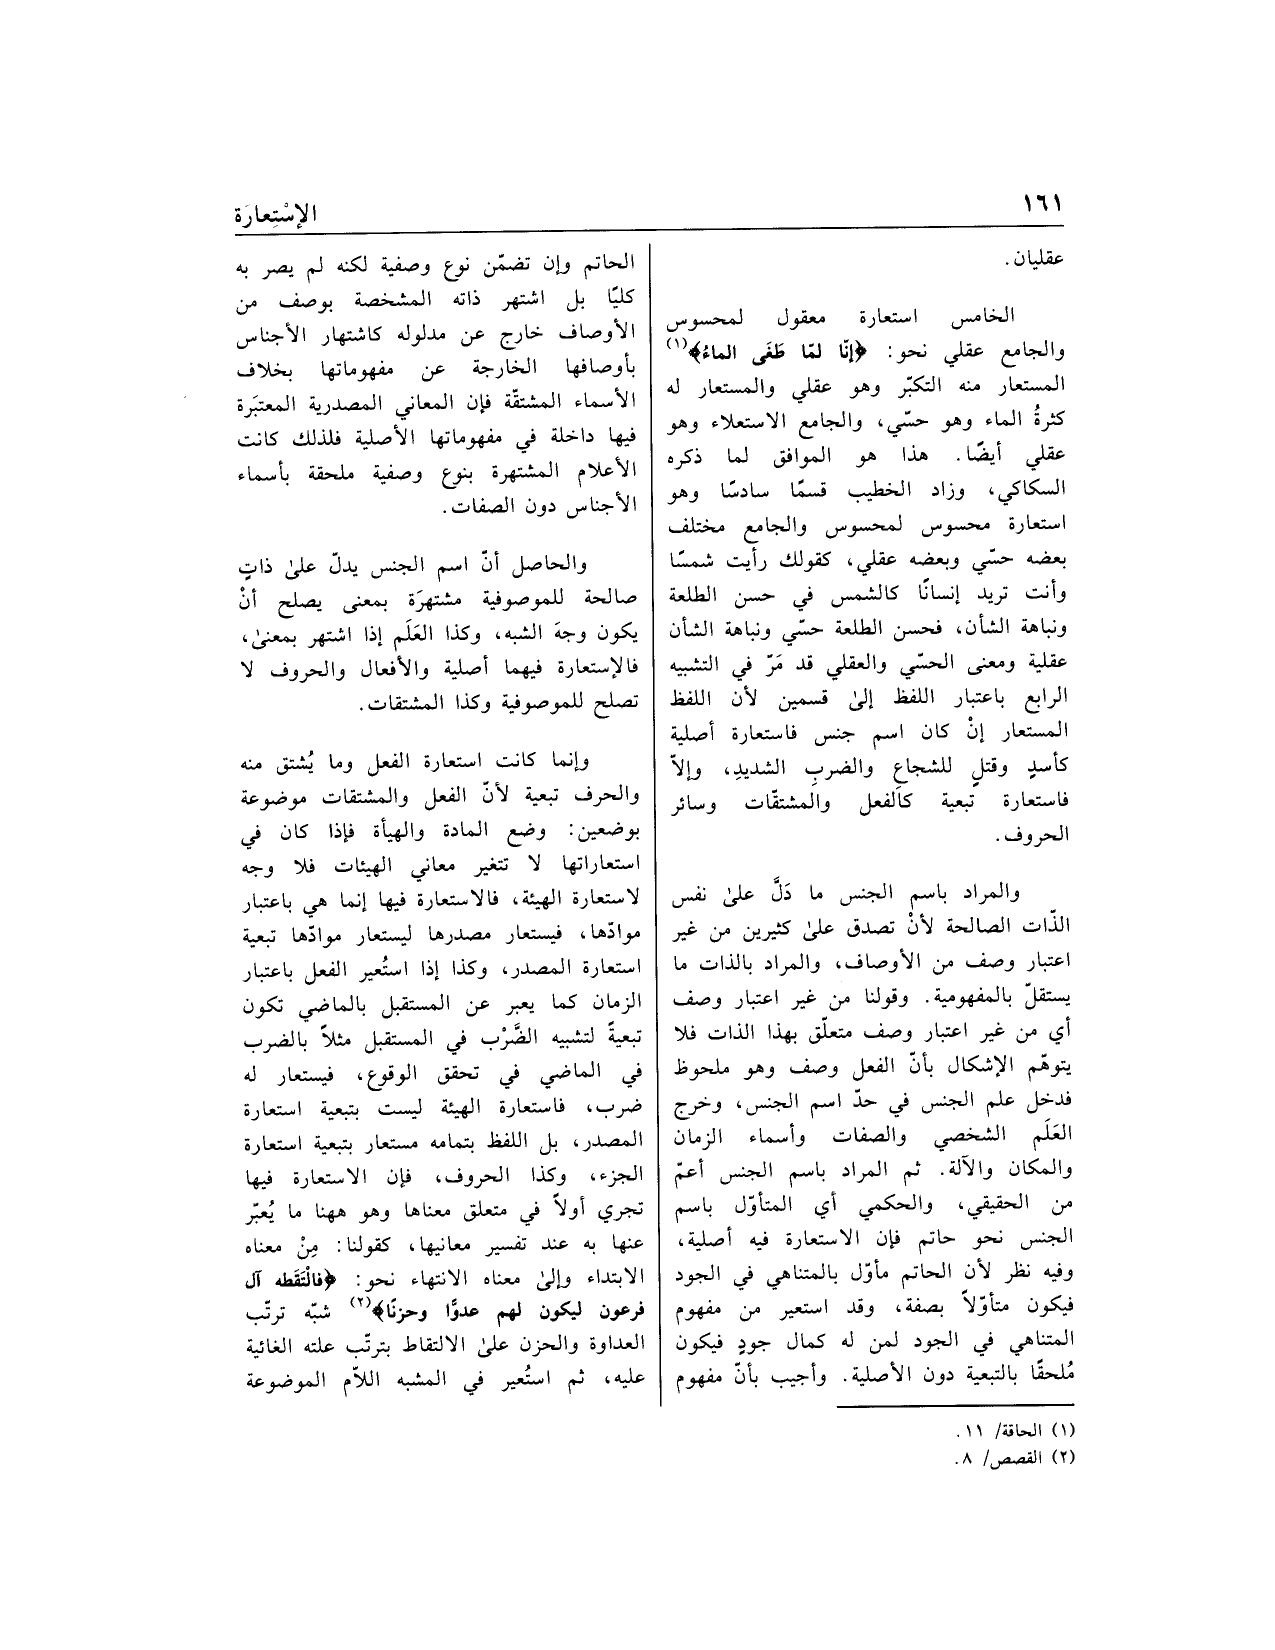 ١٦١
الإسْتِعارَة
عقليان.
الخامس استعارة معقول لمحسوس
والجامع عقلي نحو: ﴿إنّا لمّا طَغَى الماءُ﴾(١)
المستعار منه التكبّر وهو عقلي والمستعار له
كثرةُ الماء وهو حسّي، والجامع الاستعلاء وهو
عقلي أيضًا. هذا هو الموافق لما ذكره
السكاكي، وزاد الخطيب قسمًا سادسًا وهو
استعارة محسوس لمحسوس والجامع مختلف
بعضه حسّي وبعضه عقلي، كقولك رأيت شمسًا
وأنت تريد إنسانًا كالشمس في حسن الطلعة
ونباهة الشأن، فحسن الطلعة حسّي ونباهة الشأن
عقلية ومعنى الحسّي والعقلي قد مَرّ في التشبيه
الرابع باعتبار اللفظ إلىٰ قسمين لأن اللفظ
المستعار إنْ كان اسم جنس فاستعارة أصلية
كأسدٍ وقتلٍ للشجاع والضربِ الشديدِ، وإلاّ
فاستعارة تبعية كالفعل والمشتقّات وسائر
الحروف.
والمراد باسم الجنس ما دَلَّ علىٰ نفس
الذّات الصالحة لأنْ تصدق علىٰ كثيرين من غير
اعتبار وصف من الأوصاف، والمراد بالذات ما
يستقلّ بالمفهومية. وقولنا من غير اعتبار وصف
أي من غير اعتبار وصف متعلّق بهذا الذات فلا
يتوهّم الإشكال بأنّ الفعل وصف وهو ملحوظ
فدخل علم الجنس في حدّ اسم الجنس، وخرج
العَلَم الشخصي والصفات وأسماء الزمان
والمكان والآلة. ثم المراد باسم الجنس أعمّ
من الحقيقي، والحكمي أي المتأوّل باسم
الجنس نحو حاتم فإن الاستعارة فيه أصلية،
وفيه نظر لأن الحاتم مأوّل بالمتناهي في الجود
فيكون متأوّلاً بصفة، وقد استعير من مفهوم
المتناهي في الجود لمن له كمال جودٍ فيكون
مُلحقًا بالتبعية دون الأصلية. وأجيب بأنّ مفهوم
الحاتم وإن تضمّن نوع وصفية لكنه لم يصر به
كليًا بل اشتهر ذاته المشخصة بوصف من
الأوصاف خارج عن مدلوله كاشتهار الأجناس
بأوصافها الخارجة عن مفهوماتها بخلاف
الأسماء المشتقّة فإن المعاني المصدرية المعتبَرة
فيها داخلة في مفهوماتها الأصلية فلذلك كانت
الأعلام المشتهرة بنوع وصفية ملحقة بأسماء
الأجناس دون الصفات.
والحاصل أنّ اسم الجنس يدلّ علىٰ ذاتٍ
صالحة للموصوفية مشتهرَة بمعنى يصلح أنْ
يكون وجهَ الشبه، وكذا العَلَم إذا اشتهر بمعنىٰ،
فالإستعارة فيهما أصلية والأفعال والحروف لا
تصلح للموصوفية وكذا المشتقات.
وإنما كانت استعارة الفعل وما يُشتق منه
والحرف تبعية لأنّ الفعل والمشتقات موضوعة
بوضعين: وضع المادة والهيأة فإذا كان في
استعاراتها لا تتغير معاني الهيئات فلا وجه
لاستعارة الهيئة، فالاستعارة فيها إنما هي باعتبار
موادّها، فيستعار مصدرها ليستعار موادّها تبعية
استعارة المصدر، وكذا إذا استُعير الفعل باعتبار
الزمان كما يعبر عن المستقبل بالماضي تكون
تبعيةً لتشبيه الضَّرْب في المستقبل مثلاً بالضرب
في الماضي في تحقق الوقوع، فيستعار له
ضرب، فاستعارة الهيئة ليست بتبعية استعارة
المصدر، بل اللفظ بتمامه مستعار بتبعية استعارة
الجزء، وكذا الحروف، فإن الاستعارة فيها
تجري أولاً في متعلق معناها وهو ههنا ما يُعبّر
عنها به عند تفسير معانيها، كقولنا: مِنْ معناه
الابتداء وإلىٰ معناه الانتهاء نحو: ﴿فالْتَقَطه آل
فرعون ليكون لهم عدوًّا وحزنًا﴾(٢) شبّه ترتّب
العداوة والحزن علىٰ الالتقاط بترتّب علته الغائية
عليه، ثم استُعير في المشبه اللاّم الموضوعة
(١) الحاقة/ ١١.
(٢) القصص/ ٨.